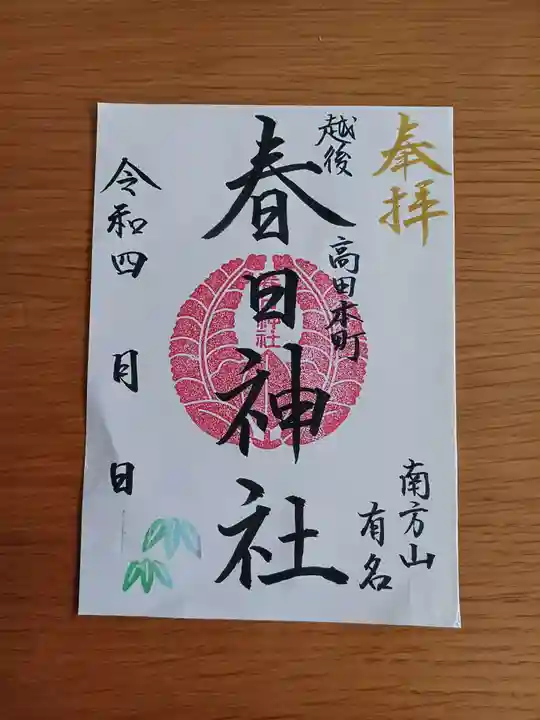 奉拝
南方山
有名
越後
高田本町
春日神社
令和四 月 日